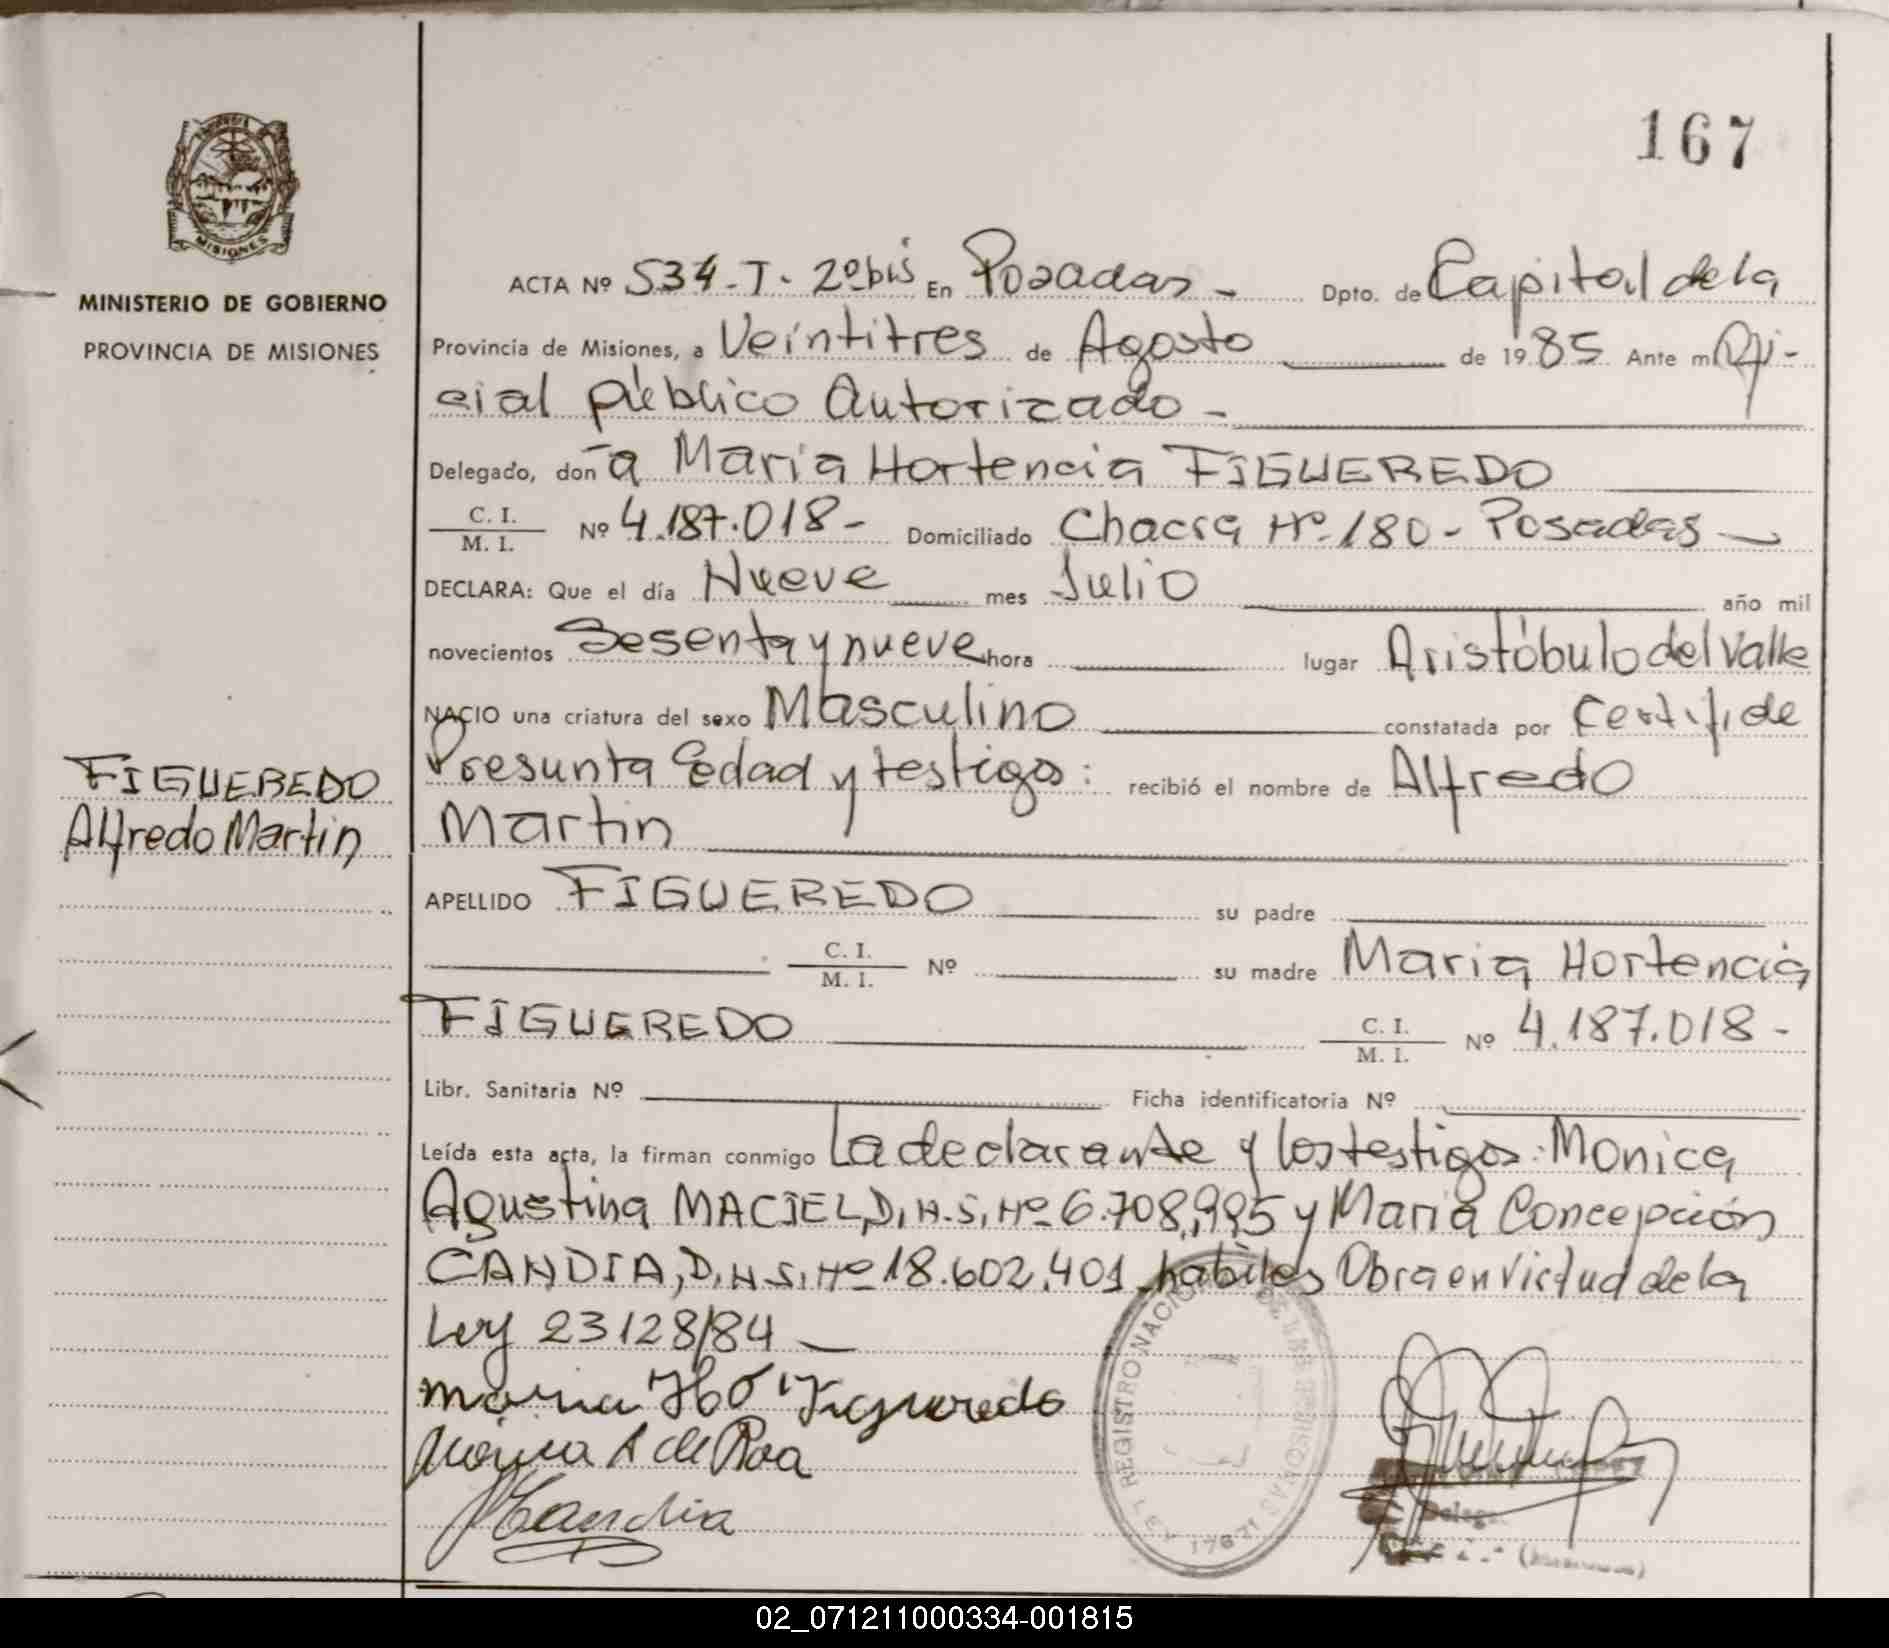 167
MISIONES
MINISTERIO DE GOBIERNO
PROVINCIA DE MISIONES
FIGUEREDO
Alfredo Martin
ACTA Nº 534-T-2º bis En Posadas - Dpto. de Capital de la
Provincia de Misiones, a Veintitres de Agosto de 1985 Ante mi Ofi-
cial público Autorizado -
Delegado, doña Maria Hortencia FIGUEREDO
C. I. / M. I. Nº 4.187.018- Domiciliado Chacra Nº 180 - Posadas -
DECLARA: Que el día Nueve mes Julio año mil
novecientos Sesenta y nueve hora lugar Aristóbulo del Valle
NACIO una criatura del sexo Masculino constatada por Certif. de
Presunta Edad y testigos: recibió el nombre de Alfredo
Martin
APELLIDO FIGUEREDO su padre
C. I. / M. I. Nº su madre Maria Hortencia
FIGUEREDO C. I. / M. I. Nº 4.187.018 -
Libr. Sanitaria Nº Ficha identificatoria Nº
Leída esta acta, la firman conmigo La declarante y los testigos: Monica
Agustina MACIEL, D.N.I. Nº 6.708.995 y Maria Concepción
CANDIA, D.N.I. Nº 18.602.401 habiles Obra en virtud de la
Ley 23128/84
Maria Hº Figueredo
Monica A de Roa
Candia
REGISTRO NACIONAL DE LAS PERSONAS
LEY 17671
Deleg.
02_071211000334-001815